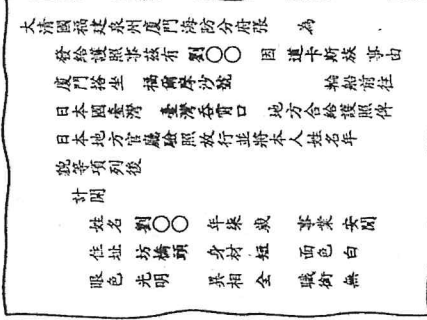 大清國福建泉州廈門海防分府張 為
發給護照事茲有 劉〇〇 因 道卡斯族 事由
廈門搭坐 福爾摩沙號 輪船前往
日本國臺灣 臺灣吞霄口 地方合給護照俾
日本地方官廳驗照放行並將本人姓名年
貌等項列後
計開
姓名 劉〇〇 年 柒 歲 事業 安閒
住址 坊橋頭 身材 短 面色 白
眼色 光明 異相 全 職銜 無